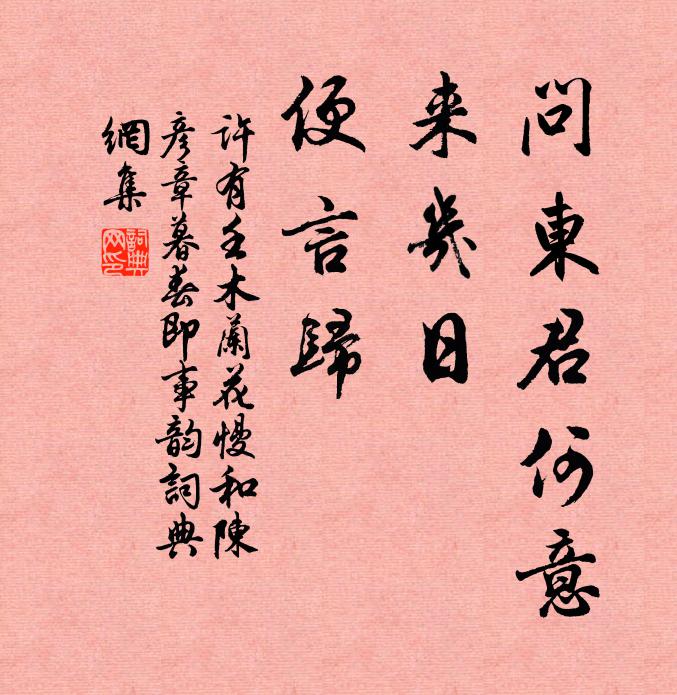 問東君何意
来幾日
便言歸
許有壬木蘭花慢和陳
彦章暮春即事韵詞典
網集
詞典
网印